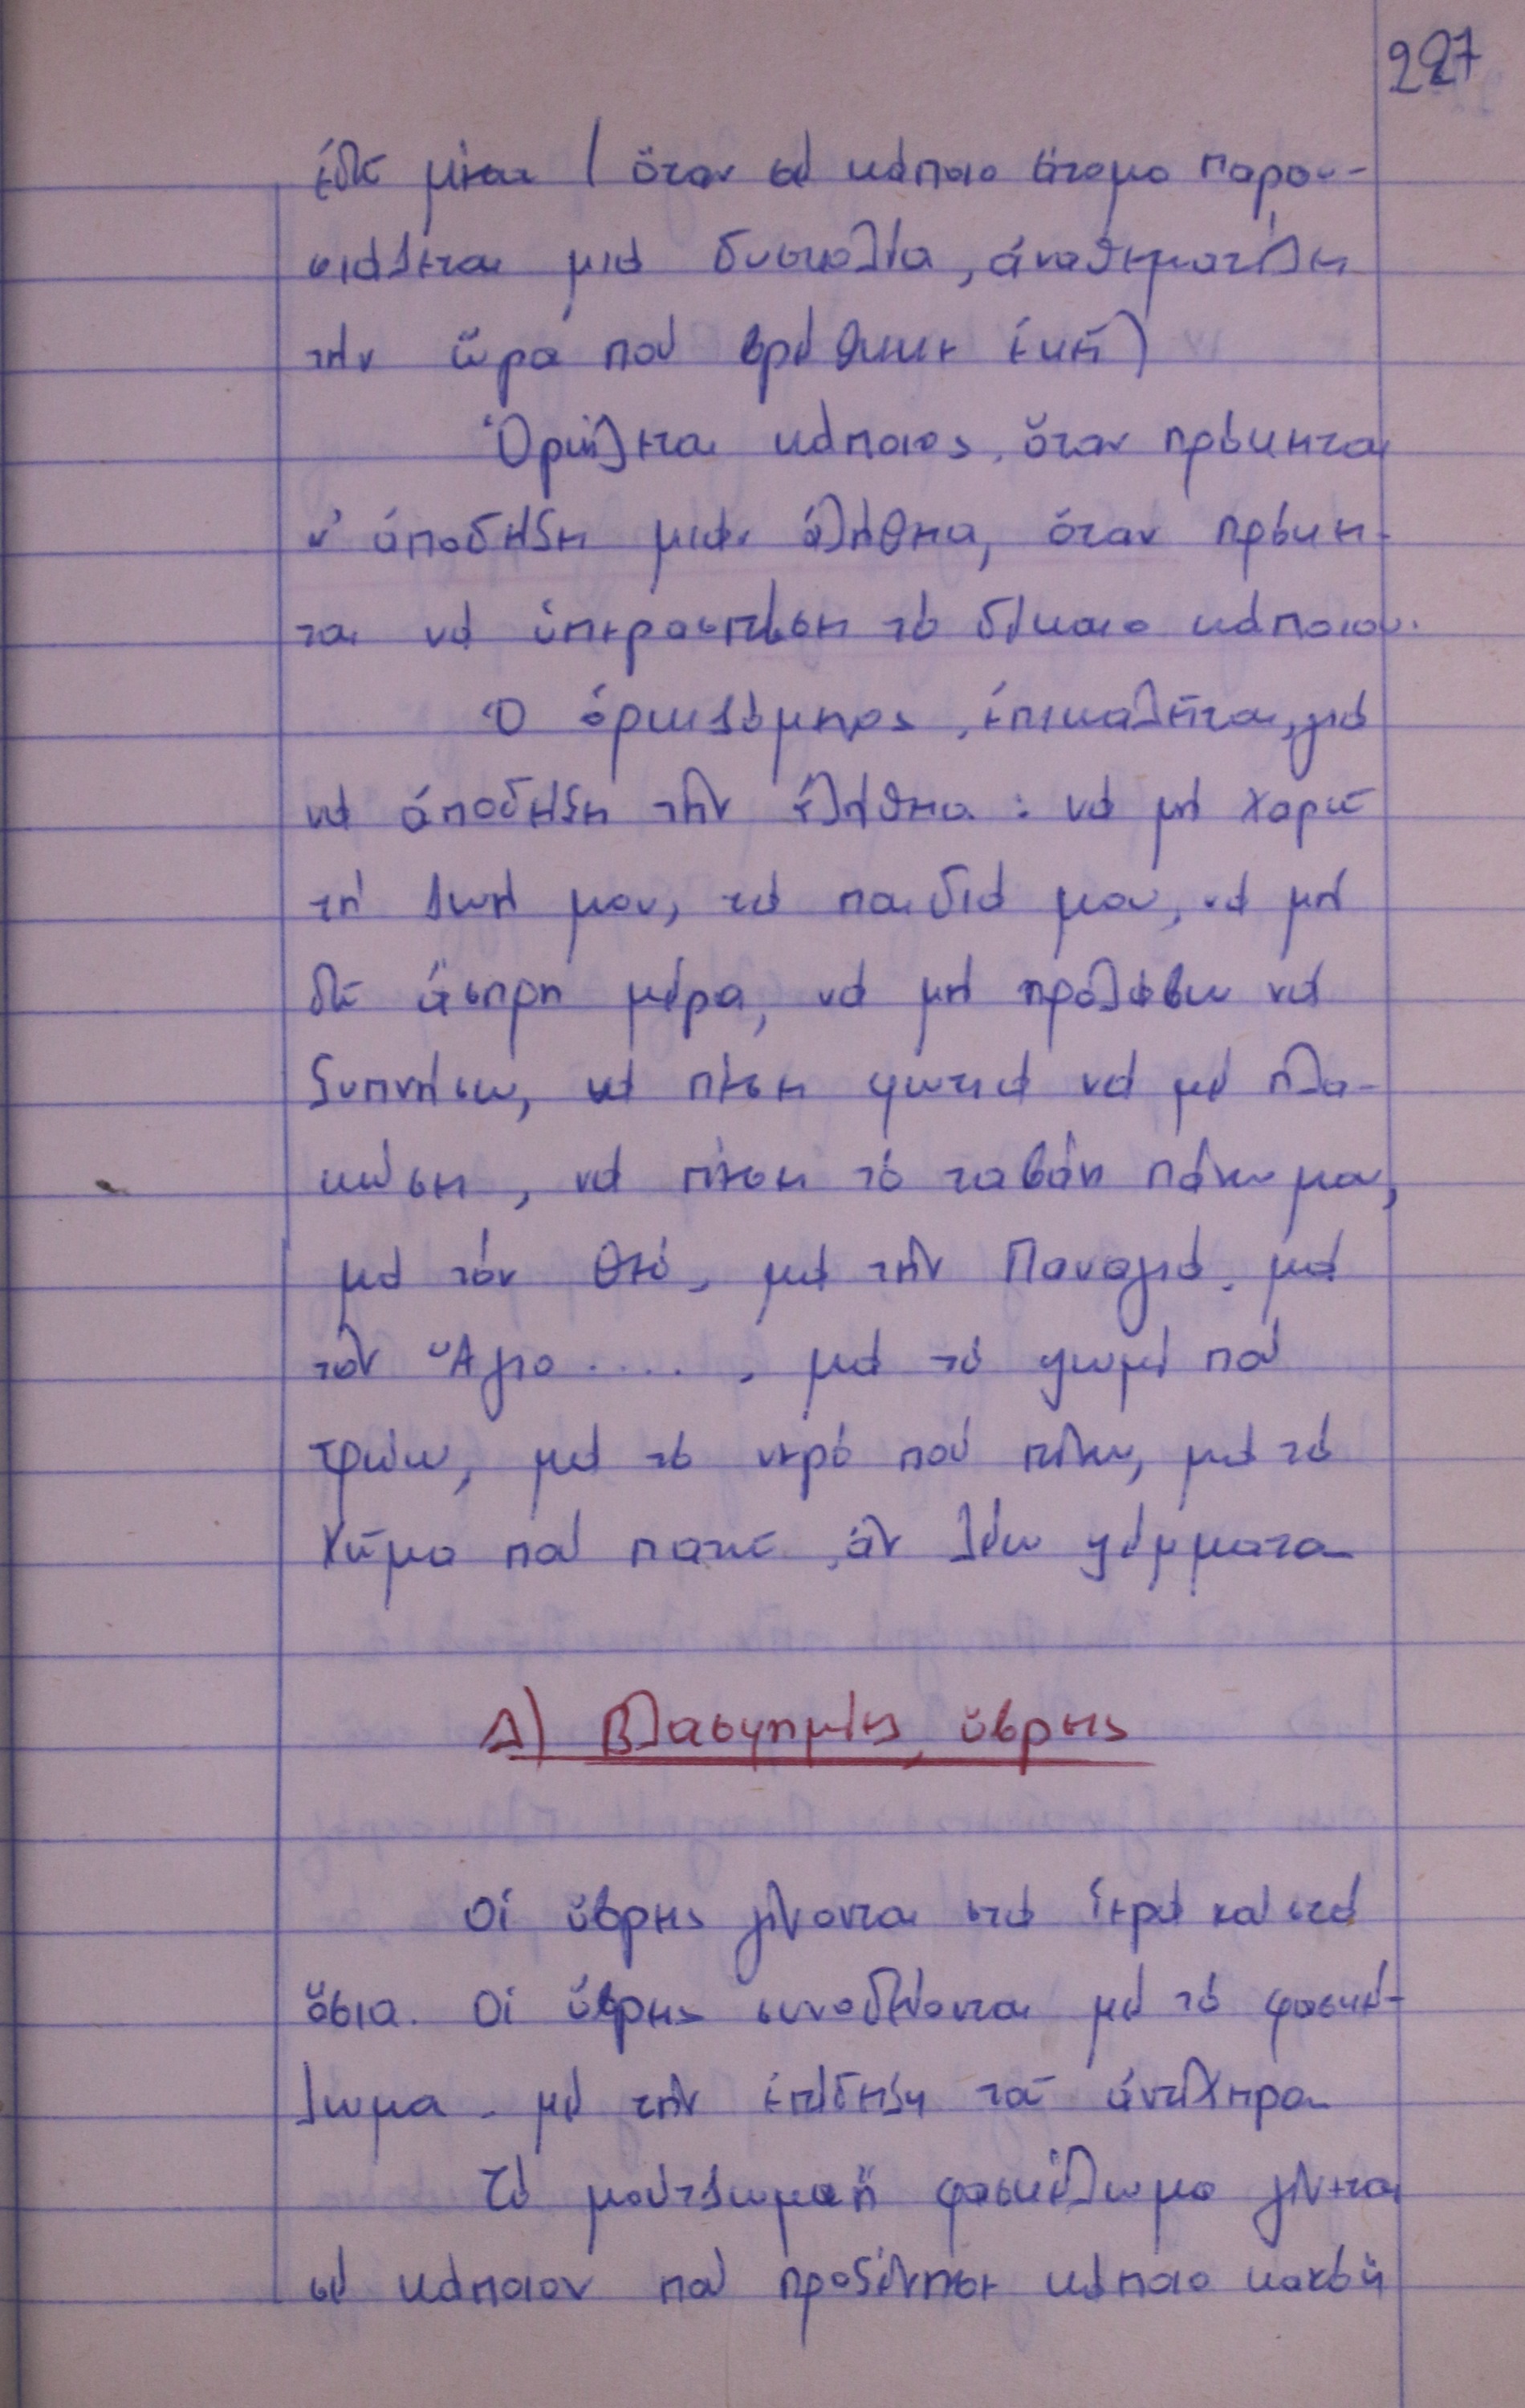 227
ἐδῶ μέσα (ὅταν σέ κάποιο ἄτομο παρου-
σιάζεται μιά δυσκολία, ἀναθεματίζει
τήν ὥρα πού βρέθηκε ἐκεῖ)
Ὁρκίζεται κάποιος, ὅταν πρόκειται
ν' ἀποδείξει μιάν ἀλήθεια, ὅταν πρόκει-
ται νά ὑπερασπίσει τό δίκαιο κάποιου.
Ὁ ὁρκιζόμενος, ἐπικαλεῖται, γιά
νά ἀποδείξει τήν ἀλήθεια: νά μή χαρῶ
τή ζωή μου, τά παιδιά μου, νά μή
δῶ ἄσπρη μέρα, νά μή προλάβω νά
ξυπνήσω, νά πέσει φωτιά νά μέ πλα-
κώσει, νά πέσει τό ταβάνι πάνω μου,
μά τόν Θεό, μά τήν Παναγιά, μά
τόν Ἅγιο ...., μά τό ψωμί πού
τρώω, μά τό νερό πού πίνω, μά τό
χῶμα πού πατῶ, ἄν λέω ψέμματα
Δ) Βλασφημίες, ὕβρεις
Οἱ ὕβρεις γίνονται στά ἱερά καί στά
ὅσια. Οἱ ὕβρεις συνοδεύονται μέ τό φασκέ-
λωμα - μέ τήν ἐπίδειξη τοῦ ἀντίχειρα
Τό μούτζωμα ἤ φασκέλωμα γίνεται
σέ κάποιον πού προξένησε κάποιο κακό ἤ